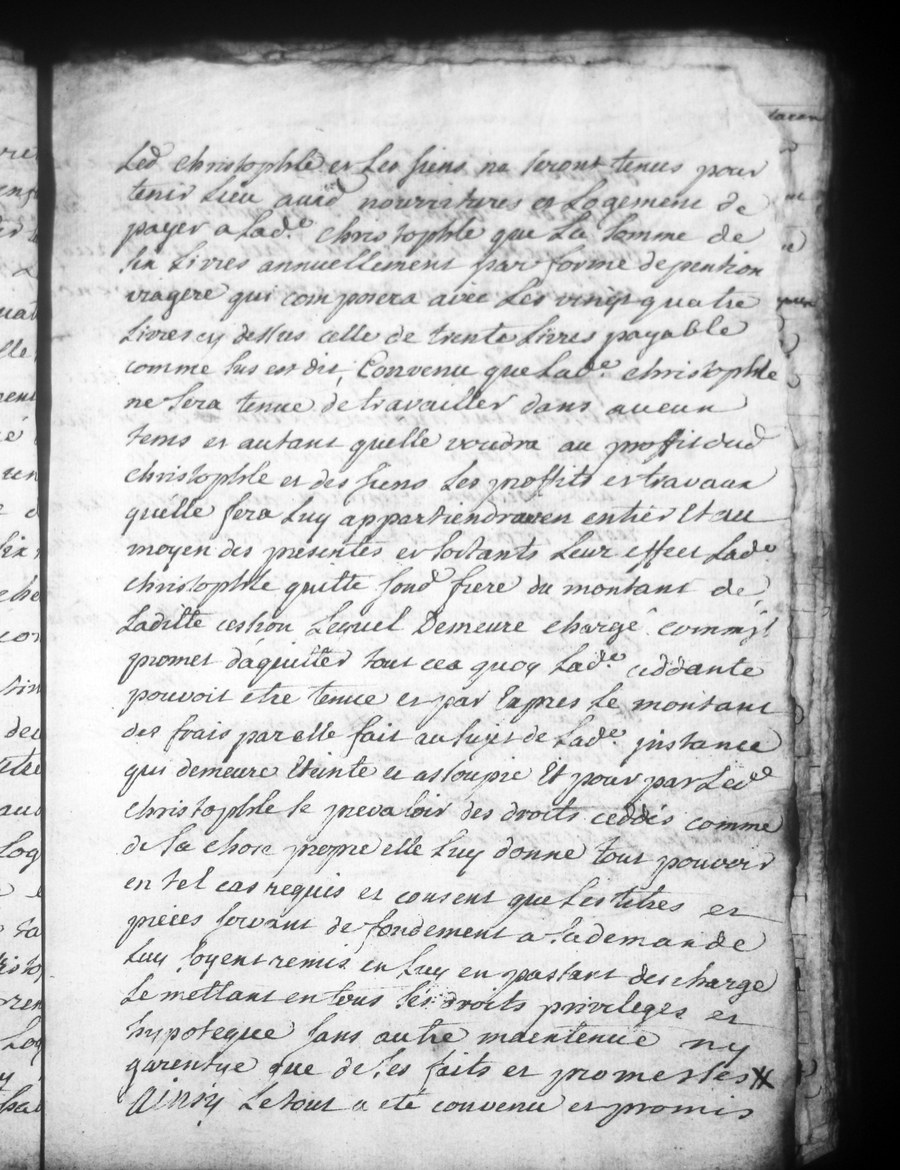 Led christophle et Les siens ne seront tenus pour
tenir Lieu aud nourritures et Logement de
payer a Lad.e christophle que La somme de
six Livres annuellement par forme de pention
viagere qui composera avec Les vingt quatre
Livres cy dessus celle de trente Livres payable
comme sus est dit, Convenu que Lad.e christophle
ne sera tenue de travailler dans aucun
tems et autant quelle voudra au proffit dud
christophle et des siens Les proffits et travaux
quelle fera Luy appartiendra en entier Et au
moyen des presentes et sortants Leur effect Lad.e
christophle quitte sond frere du montant de
Laditte cession Lequel Demeure chargé comm'il
promet daquitter tout ce a quoy Lad.e ceddante
pouvoit etre tenue et par Expres Le montant
des frais par elle fait au sujet de Lad.e instance
qui demeure Eteinte et assoupie Et pour par Led
christophle se prevaloir des droits ceddés comme
de sa chose propre elle Luy donne tout pouvoir
en tel cas requis et consent que Les titres et
pieces servant de fondement a sa demande
Luy soyent remis en Luy en passant descharge
Le mettant en tous ses droits privileges et
hypoteque sans autre maintenue ny
garentye que de ses faits et promesses
Ainsy Le tout a eté convenu et promis